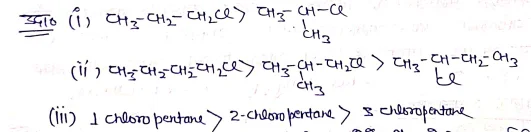 3410 (i) CH3-CH2-CH2Cl > CH3-CH-Cl
CH3
(ii) CH3-CH2-CH2-CH2Cl > CH3-CH-CH2Cl > CH3-CH-CH2-CH3
CH3 Cl
(iii) 1 chloropentane > 2-chloropentane > 3 chloropentane